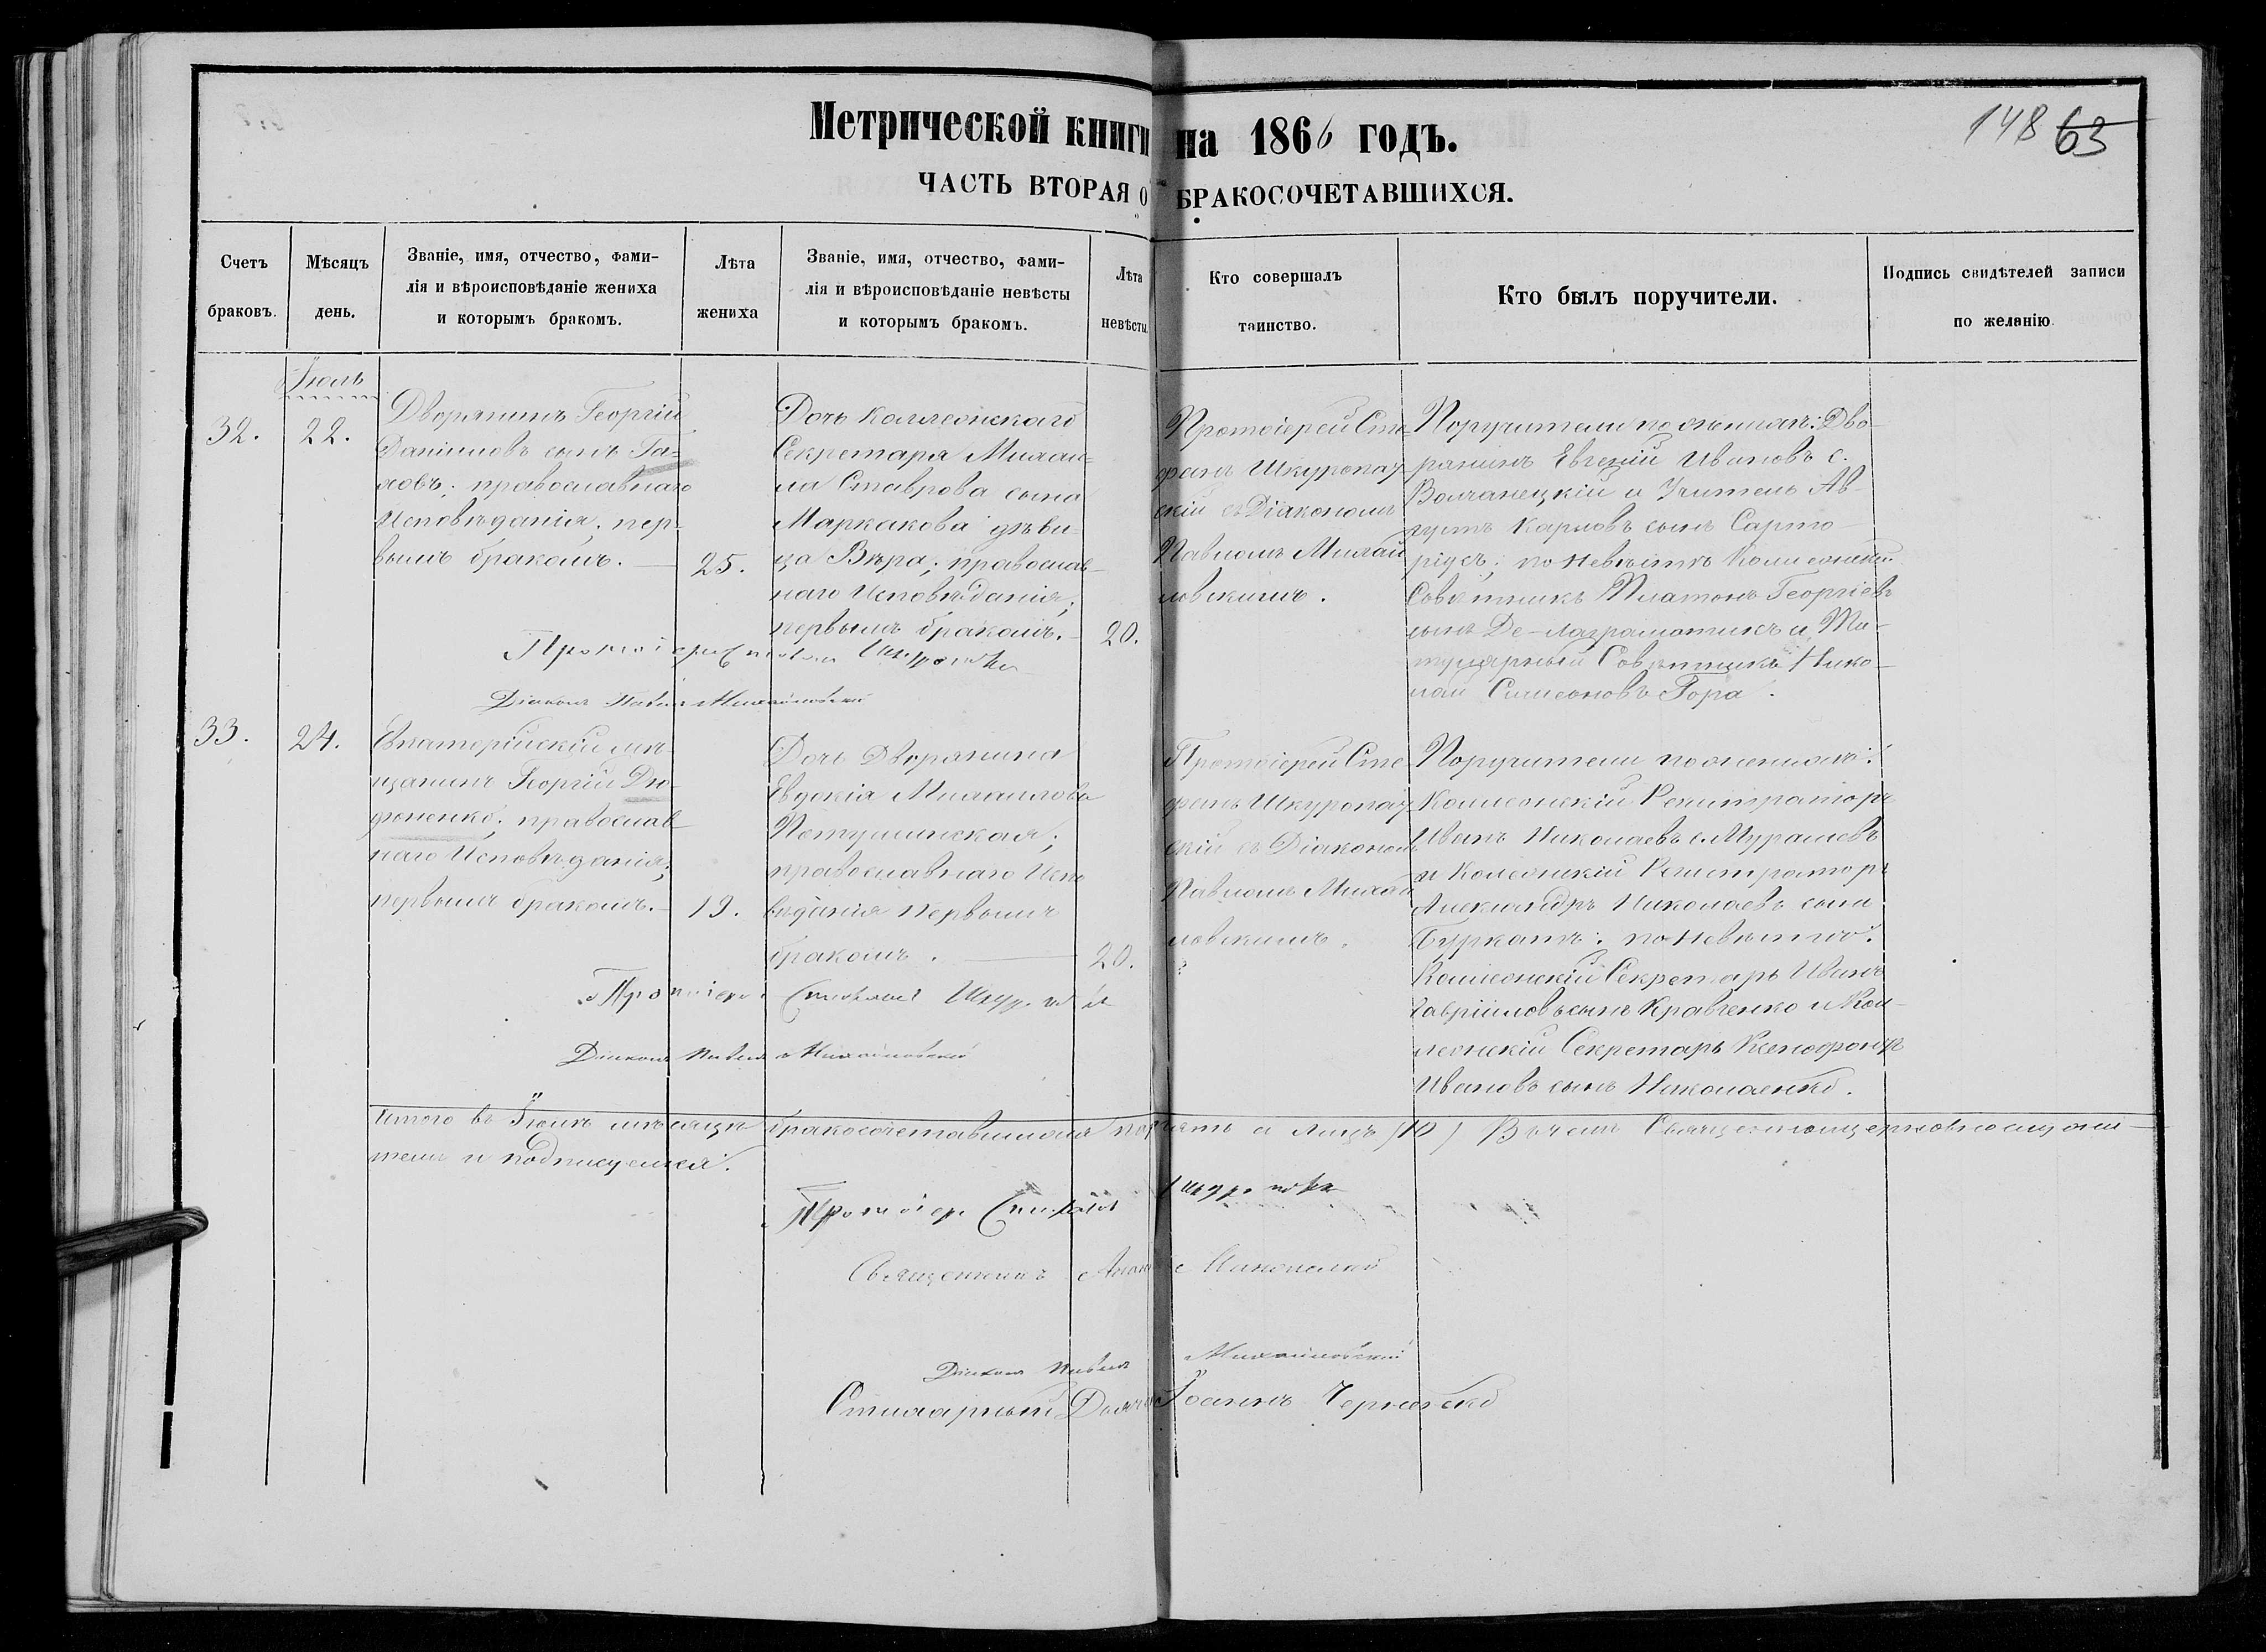 Метрической книги на 1866 годъ.
148 63
ЧАСТЬ ВТОРАЯ О БРАКОСОЧЕТАВШИХСЯ.
Счетъ браковъ.
Мѣсяцъ день.
Званіе, имя, отчество, фами-
лія и вѣроисповѣданіе жениха
и которымъ бракомъ.
Лѣта жениха
Званіе, имя, отчество, фами-
лія и вѣроисповѣданіе невѣсты
и которымъ бракомъ.
Лѣта невѣсты
Кто совершалъ
таинство.
Кто былъ поручители.
Подпись свидѣтелей записи
по желанію
Іюль
32.
22.
Дворянинъ Георгій
Даніиловъ сынъ Га-
ховъ; православнаго
Исповѣданія, пер-
вымъ бракомъ.
25.
Дочь Коллежскаго
Секретаря Михаи-
ла Ставрова сына
Маркакова дѣви-
ца Вѣра; православ-
наго Исповѣданія;
первымъ бракомъ.
20.
Протоіерей Сте-
фанъ Шкуропат-
скій съ Діакономъ
Павломъ Михай-
ловскимъ.
Поручители по женихѣ: Дво-
рянинъ Евгеній Ивановъ с.
Волчанецкій и Учитель Ав-
густъ Карловъ сынъ Сарто-
ріусъ; по Невѣстѣ Коллежскій
Совѣтникъ Платонъ Георгіевъ
сынъ Де-лазраматикъ и Ти-
тулярный Совѣтникъ Нико-
лай Симеоновъ Гора.
Протоіерей Стефанъ
Діаконъ Павелъ Михайловскій
33.
24.
Евпаторійскій мѣ-
щанинъ Георгій Дю-
фоненко; православ-
наго Исповѣданія;
первымъ бракомъ.
19.
Дочь Дворянина
Евдокія Михаилова
Петушинская;
православнаго Испо
вѣданія первымъ
бракомъ.
20.
Протоіерей Сте-
фанъ Шкуропат-
скій съ Діакономъ
Павломъ Михай
ловскимъ.
Поручители по женихѣ:
Коллежскій Регистраторъ
Иванъ Николаевъ с. Мурашевъ
и Колежскій Регистраторъ
Александръ Николаевъ сынъ
Буркатъ; по Невѣстѣ:
Коллежскій Секретарь Иванъ
Гавріиловъ сынъ Кравченко и Кол-
лежскій Секретарь Ксенофонтъ
Ивановъ сынъ Николаенко.
Протоіерей Стефанъ
Діаконъ Павелъ Михайловскій
Итого въ Іюлѣ мѣсяцѣ бракосочетавшихся паръ пять а лицъ (10) Въ чемъ
и подписуемся.
Протоіерей Стефанъ
Священникъ
Діаконъ Павелъ Михайловскій
Дьячекъ Іоаннъ Чернявскій